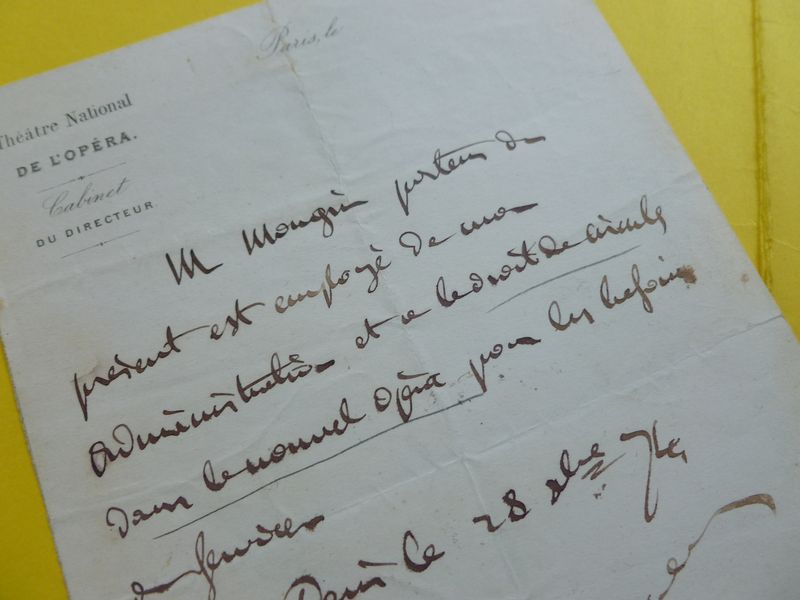 Paris, le
Théâtre National
DE L'OPÉRA.
Cabinet
DU DIRECTEUR
M Mougin porteur du
présent est employé de mon
administration et a le droit de circuler
dans le nouvel opéra pour les besoins
du service
Paris le 28 8bre 74